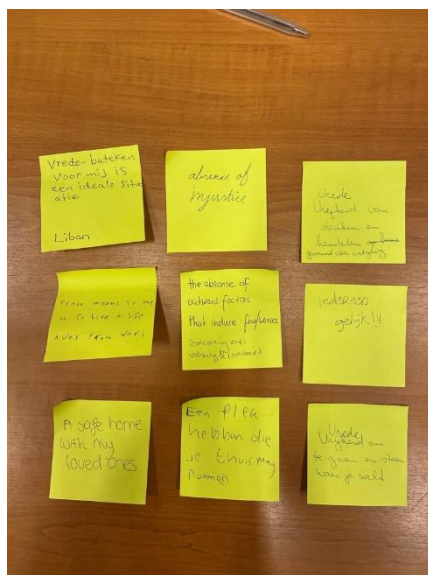 Vrede beteken
voor mij is
een ideale situ
atie
Liban
absence of
injustice
Vrede
Vrijheid van
denken en
handelen
Peace means to me
is to live a life
away from wars
the absense of
outward factors
that induce
iedereen
gelijk!!!
A safe home
with my
loved ones
Een plek
hebben die
je thuis mag
noemen
Vrede
Vrijheid om
te gaan en staan
waar je wild